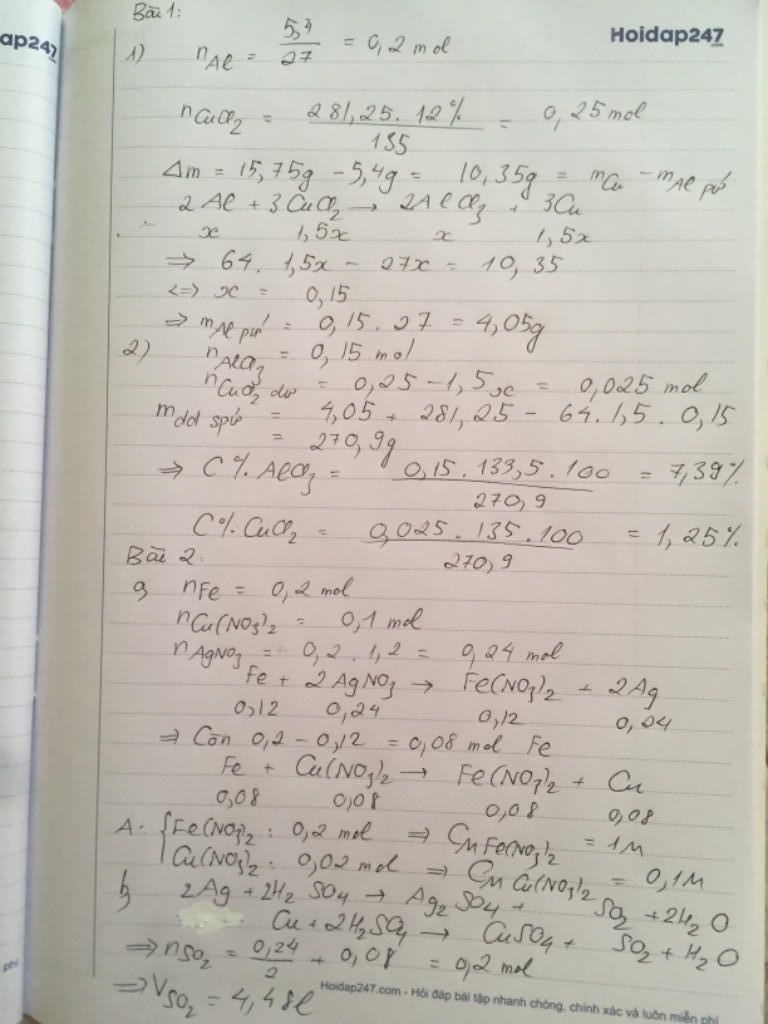 Bài 1:
ap247
Hoidap247
1) nAl = 5,4/27 = 0,2 mol
nCuCl2 = 281,25. 12%/135 = 0,25 mol
Δm = 15,75g - 5,4g = 10,35g = mCu - mAl pứ
2Al + 3CuCl2 → 2AlCl3 + 3Cu
x 1,5x x 1,5x
⇒ 64. 1,5x - 27x = 10,35
<=> x = 0,15
⇒ mAl pứ = 0,15. 27 = 4,05g
2) nAlCl3 = 0,15 mol
nCuCl2 dư = 0,25 - 1,5x = 0,025 mol
mdd spứ = 4,05 + 281,25 - 64. 1,5. 0,15
= 270,9g
⇒ C% AlCl3 = 0,15. 133,5. 100/270,9 = 7,39%
C% CuCl2 = 0,025. 135. 100/270,9 = 1,25%
Bài 2:
a, nFe = 0,2 mol
nCu(NO3)2 = 0,1 mol
nAgNO3 = 0,2. 1,2 = 0,24 mol
Fe + 2AgNO3 → Fe(NO3)2 + 2Ag
0,12 0,24 0,12 0,24
⇒ Còn 0,2 - 0,12 = 0,08 mol Fe
Fe + Cu(NO3)2 → Fe(NO3)2 + Cu
0,08 0,08 0,08 0,08
A: { Fe(NO3)2: 0,2 mol ⇒ CM Fe(NO3)2 = 1M
Cu(NO3)2: 0,02 mol ⇒ CM Cu(NO3)2 = 0,1M
b, 2Ag + 2H2SO4 → Ag2SO4 + SO2 + 2H2O
Cu + 2H2SO4 → CuSO4 + SO2 + H2O
⇒ nSO2 = 0,24/2 + 0,08 = 0,2 mol
⇒ VSO2 = 4,48l
phí
Hoidap247.com - Hỏi đáp bài tập nhanh chóng, chính xác và luôn miễn phí